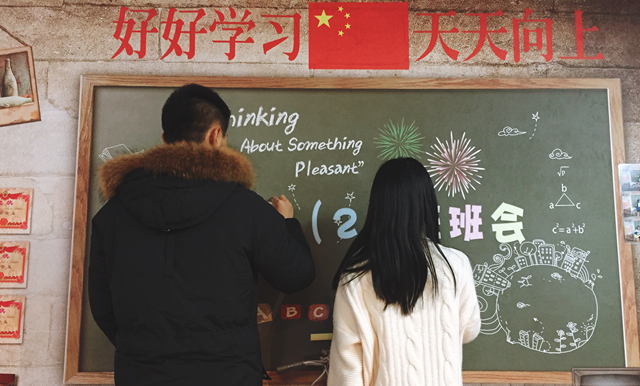 好好学习 天天向上
hinking
About Something
Pleasant”
(2 班会
b
a c
c²=a²+b²
A B C